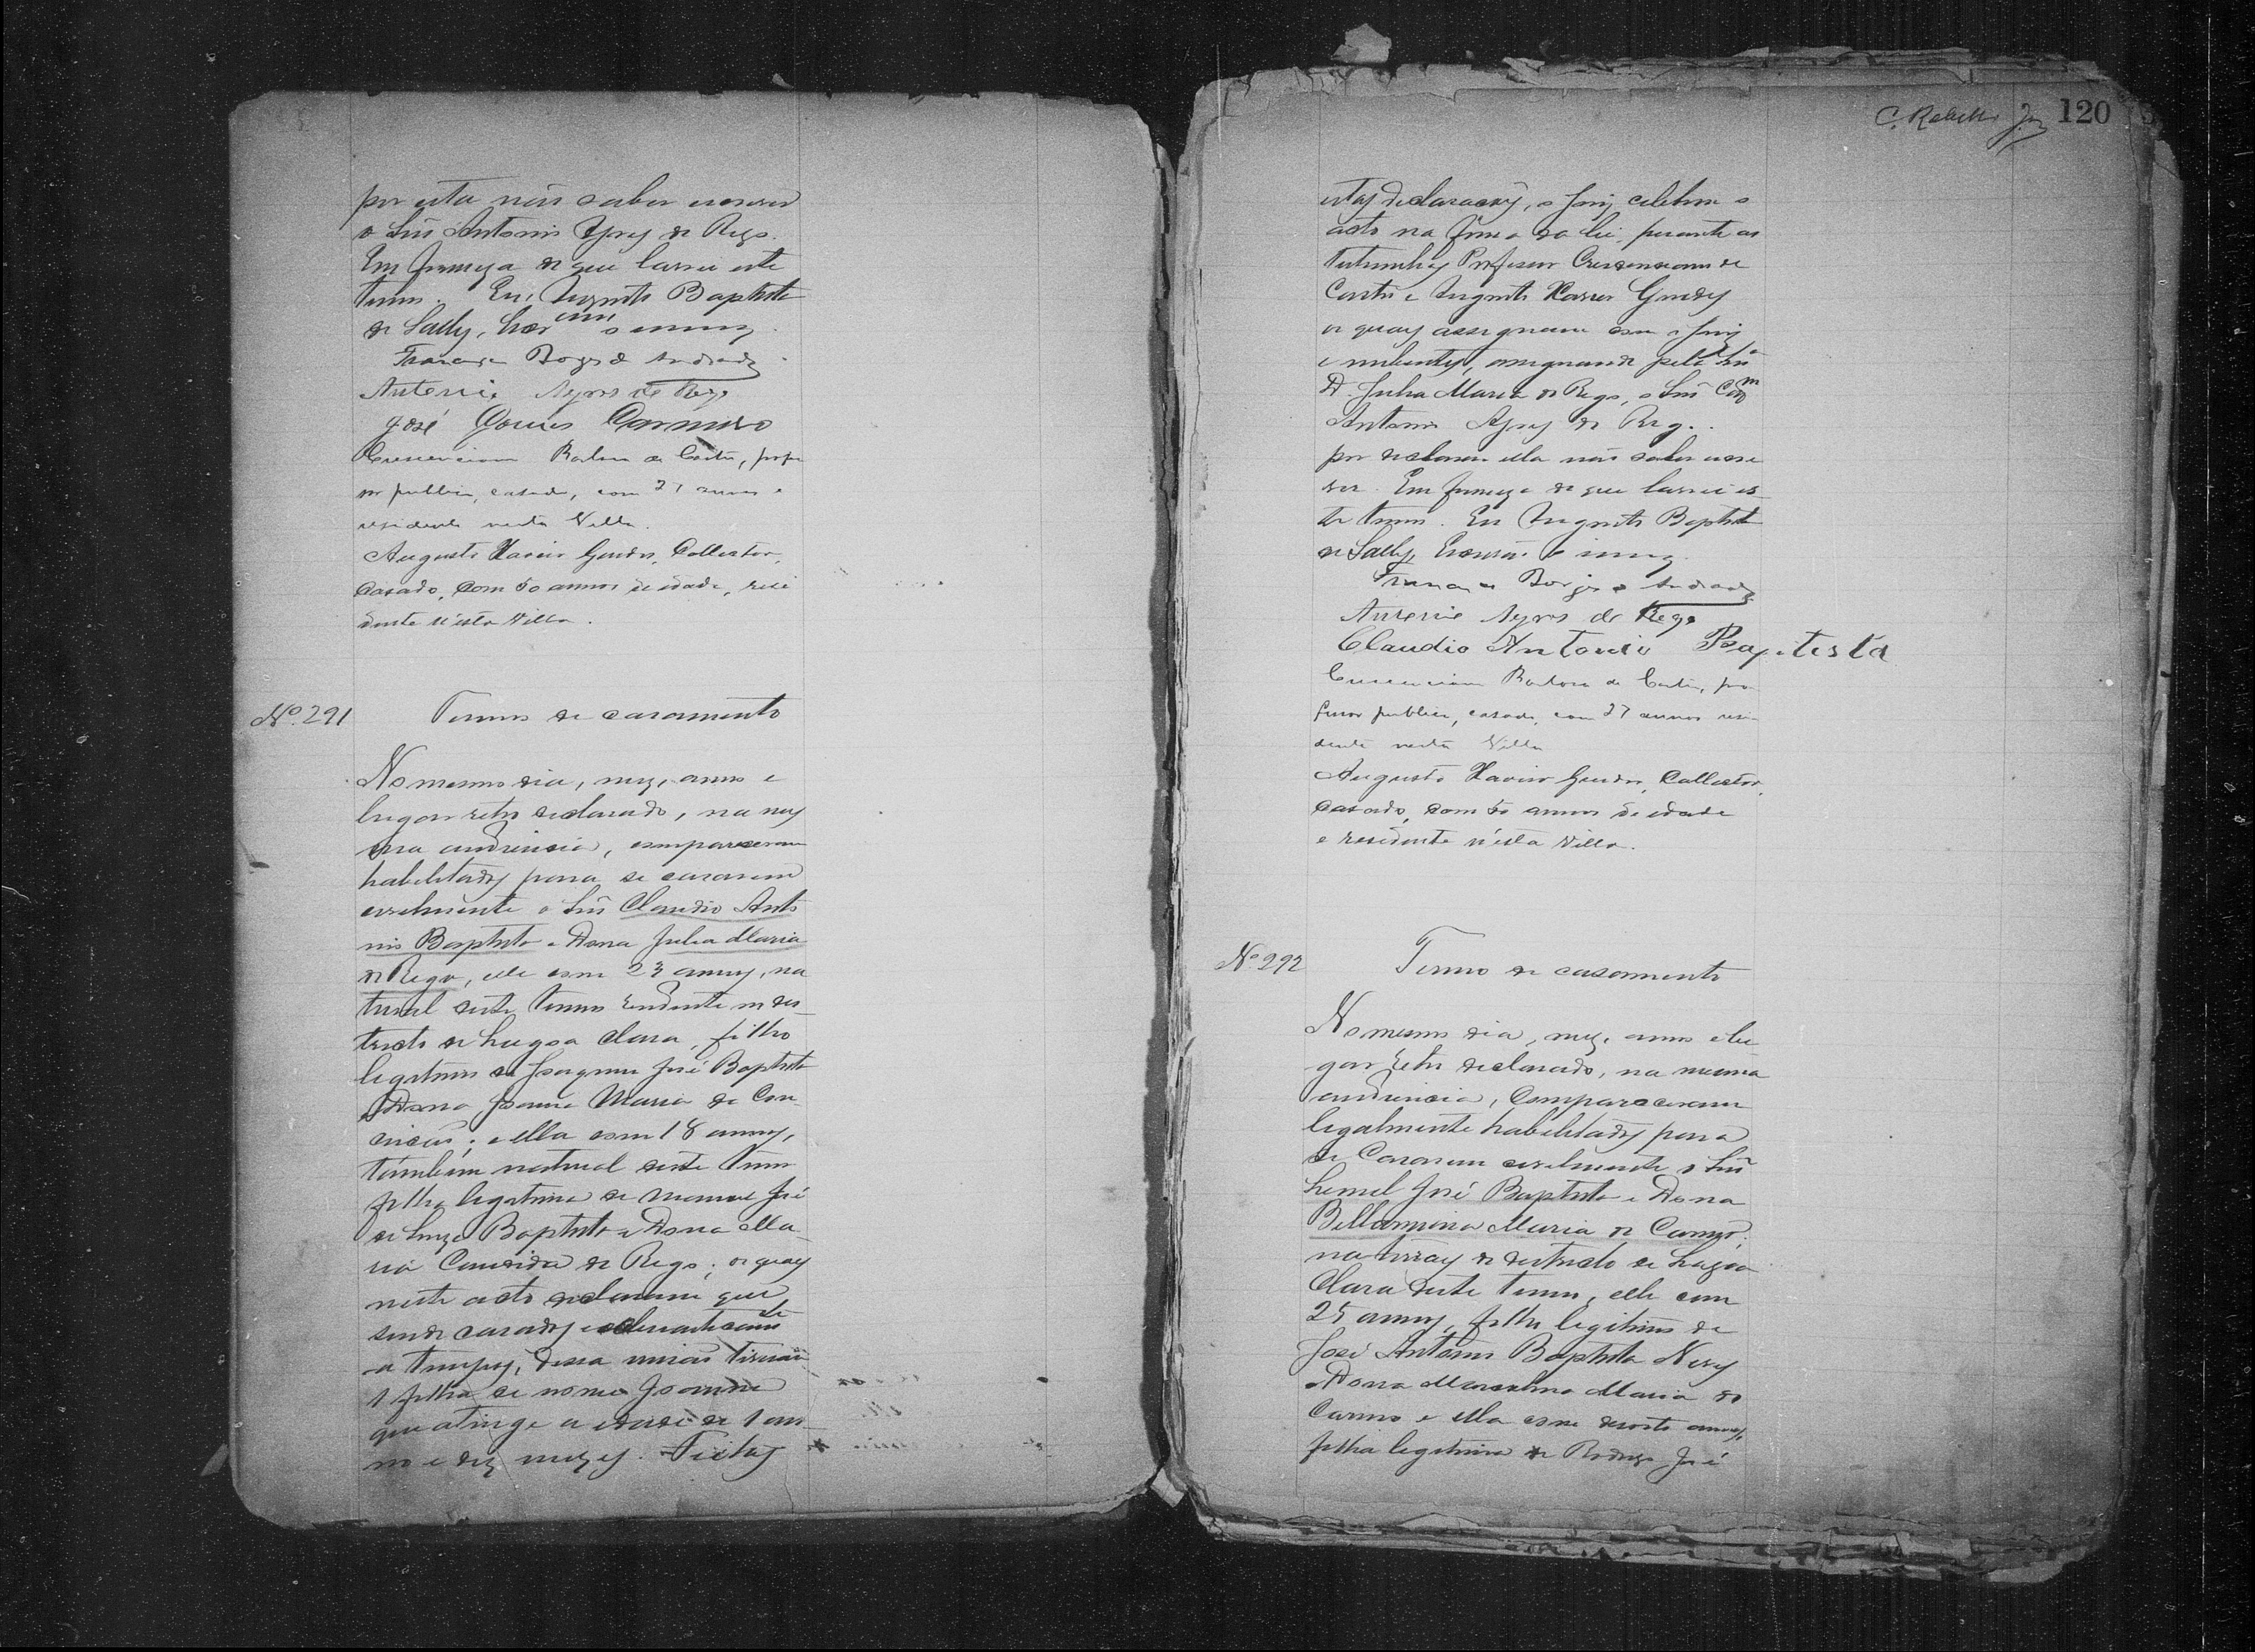 por esta não saber escrever
o Snr Antonio Ayres do Rego.
Em firmeza do que lavrei este
termo. Eu, Augusto Baptista
de Salles, Escrivão o escrevy.
Francisco Borges de Andrade
Antonio Ayres do Rego
José Gomes
Crescenciano Barbosa de Castro, profes
sor publico, casado, com 27 annos e
residente nesta Villa.
Augusto Xavier Guedes, Collector,
casado, com 50 annos de idade, resi
dente n'esta Villa.
Nº. 291
Termo de casamento
No mesmo dia, mez, anno e
lugar retro declarado, na mes
ma audiencia, compareceram
habilitados para se casarem
civilmente o Snr Claudio Anto
nio Baptista e Dona Julia Maria
do Rego, elle com 23 annos, na
tural deste termo residente no dis
tricto de Lagoa Clara, filho
legitimo de Joaquim José Baptista
e Dona Joanna Maria da Con
ceição; e ella com 18 annos,
tambem natural deste termo
filha legitima de Manoel José
de Souza Baptista e Dona Ma
ria Candida do Rego; os quaes
neste acto declararam que
sendo casados eclesiasticamte
a tempos, dessa união tiveram
1 filha de nome Joanna
que atinge a idade de 1 an
no e dez mezes. Feitas
C. Rabello Jor 120
estas declarações, o Juiz celebrou o
acto na forma da lei, perante as
testemunhas Professor Crescenciano de
Castro e Augusto Xavier Guedes
os quaes assignam com o Juiz
e nubentes, assignando pela Snra
D. Julia Maria do Rego, o Snr Capm
Antonio Ayres do Rego.
por declarar ella não saber escre
ver. Em firmeza do que lavrei es
te termo. Eu Augusto Baptista
de Salles, Escrivão o escrevy.
Francisco Borges de Andrade
Antonio Ayres do Rego
Claudio Antonio Baptista
Crescenciano Barbosa de Castro, pro
fessor publico, casado, com 27 annos resi
dente nesta Villa
Augusto Xavier Guedes, Collector,
casado, com 50 annos de idade
e residente n'esta Villa.
Nº 292
Termo de casamento
No mesmo dia, mez, anno e lu
gar retro declarado, na mesma
audiencia, compareceram
legalmente habilitados para
se casarem civilmente o Snr
José Baptista e Dona
Bellarmina Maria do Carmo,
naturaes do districto de Lagoa
Clara deste termo, elle com
25 annos, filho legitimo de
José Antonio Baptista Nery
e Dona Maria do
Carmo e ella com dezoito annos,
filha legitima de Rodrigo José